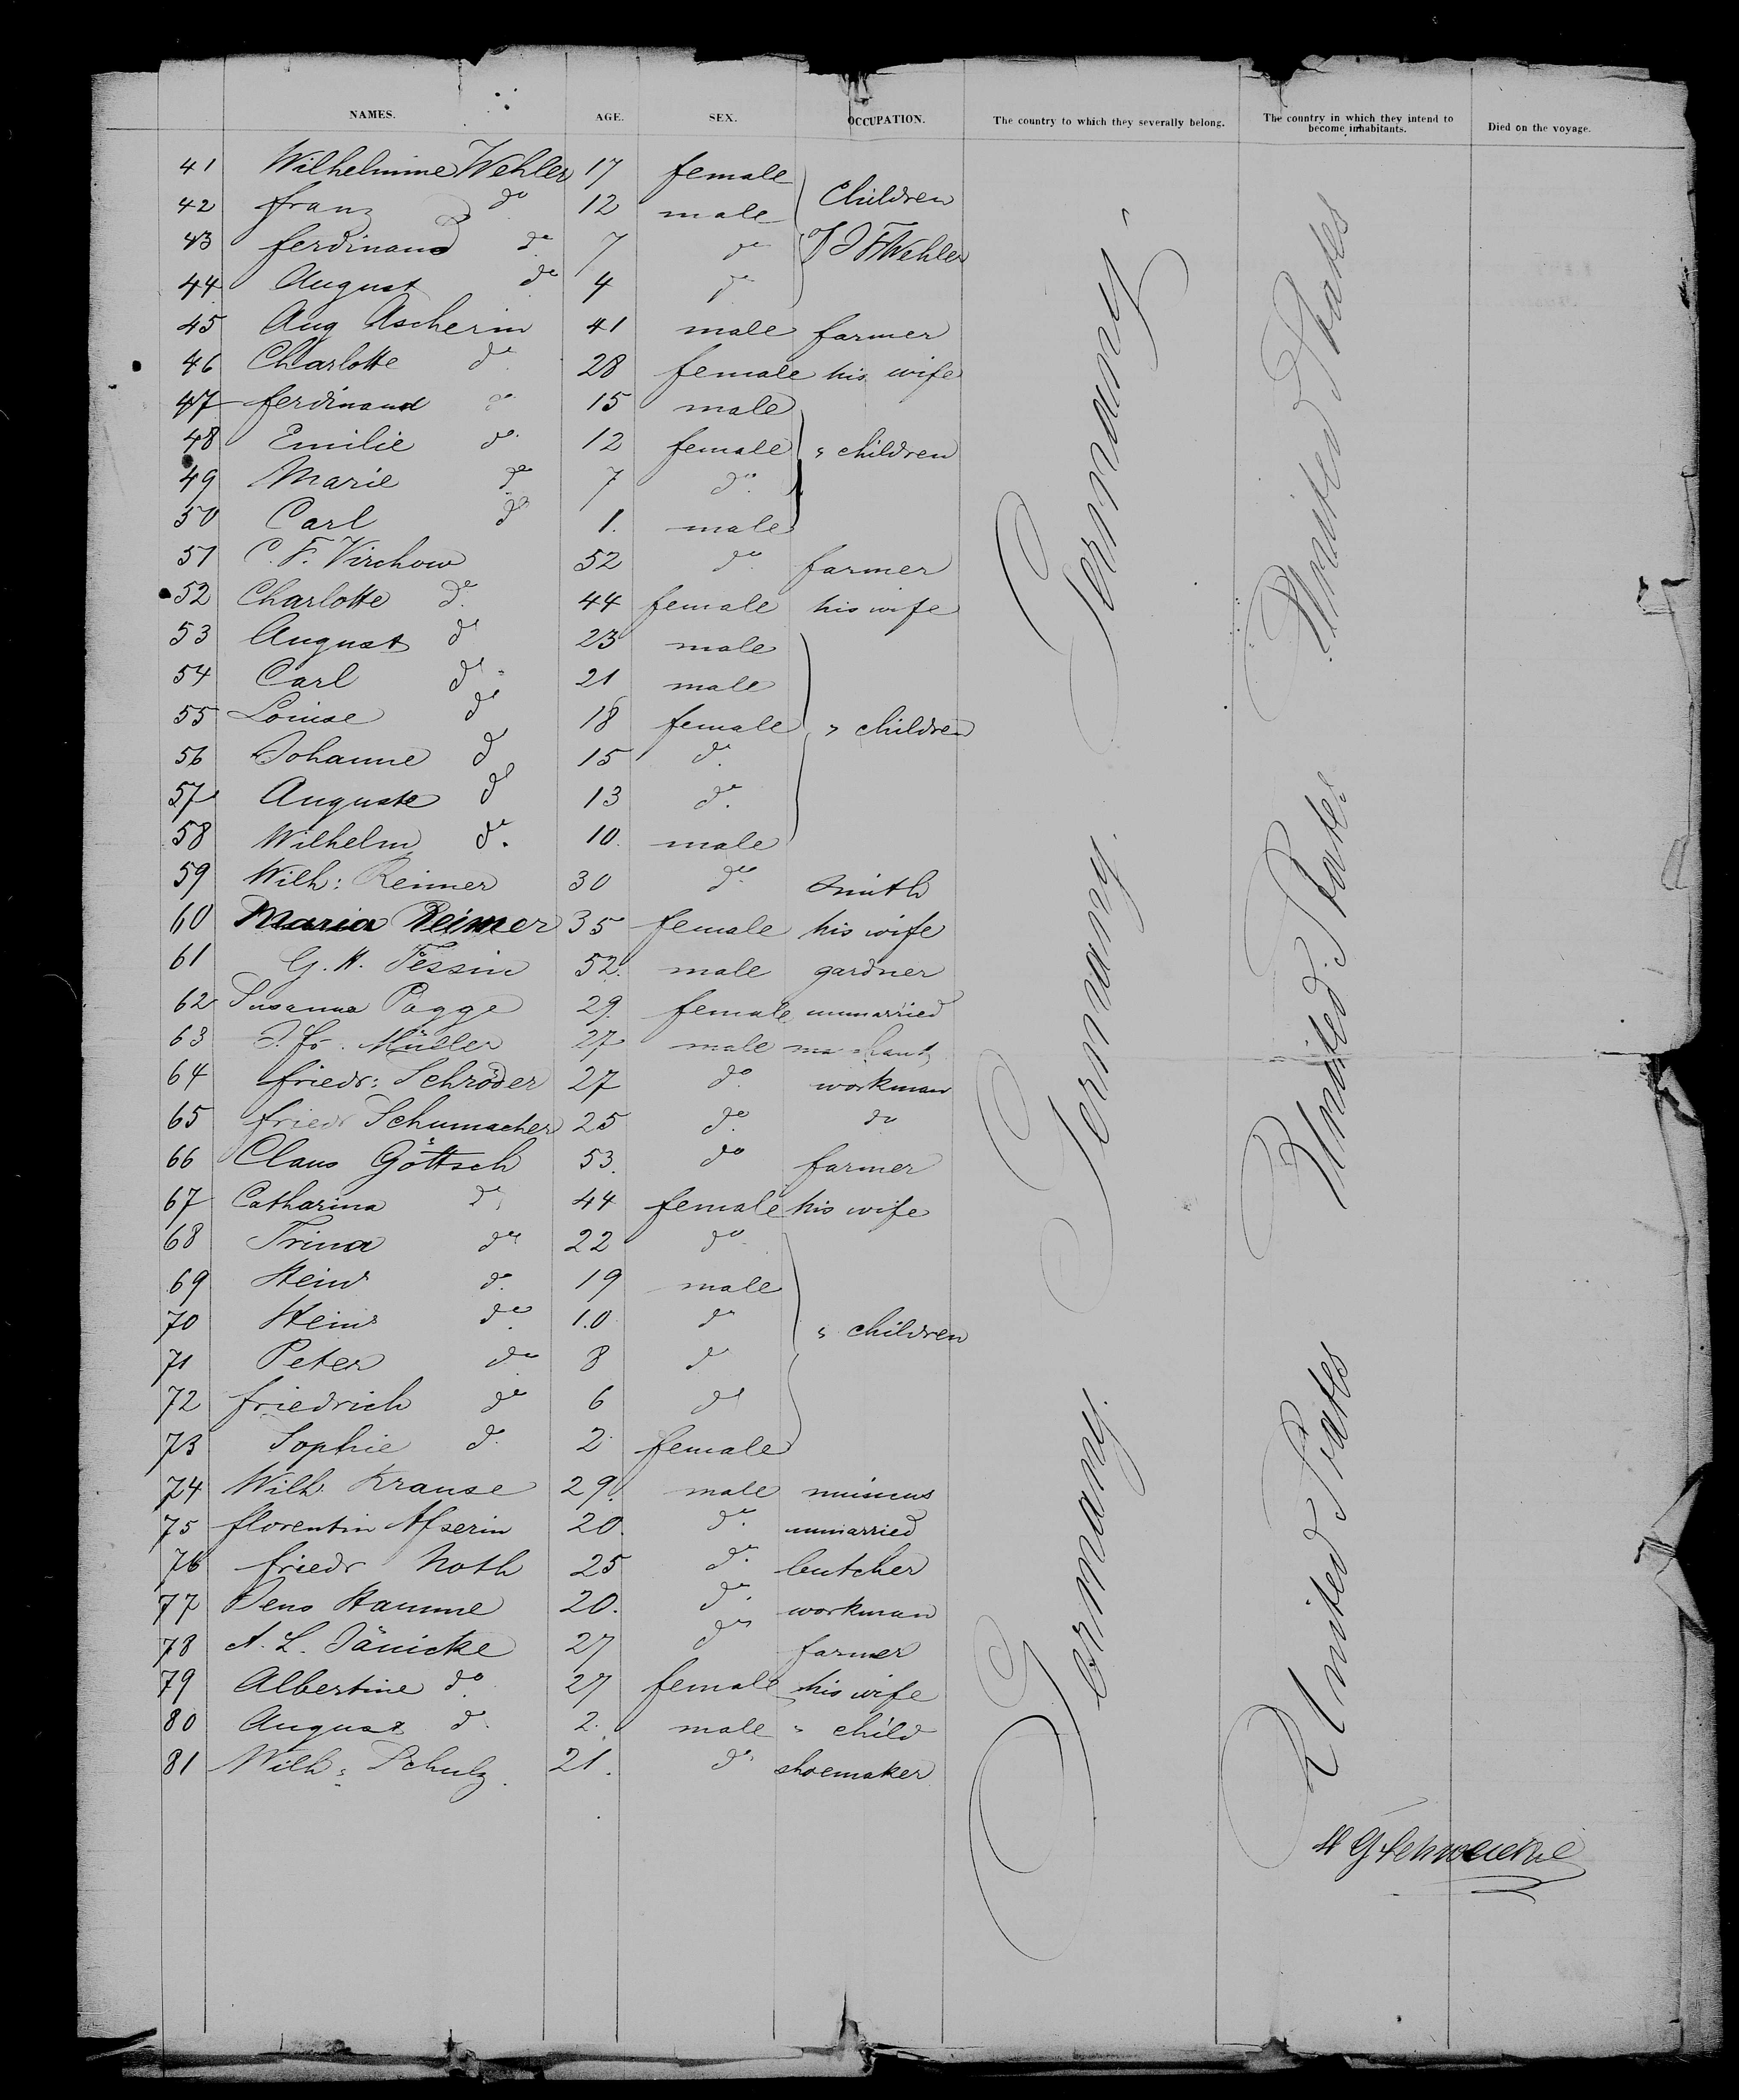 NAMES. AGE. SEX. OCCUPATION. The country to which they severally belong. The country in which they intend to become inhabitants. Died on the voyage.
41 Wilhelmine Wehler 17 female Children
42 Franz do 12 male
43 Ferdinand do 7 do of J F Wehler
44 August do 4 do
45 Aug Ascherin 41 male farmer
46 Charlotte do 28 female his wife
47 Ferdinand do 15 male
48 Emilie do 12 female " children
49 Marie do 7 do
50 Carl do 1. male
51 C. F. Virchow 52 do farmer
52 Charlotte do 44 female his wife
53 August do 23 male
54 Carl do 21 male
55 Louise do 18 female " children
56 Johanne do 15 do
57 Auguste do 13 do
58 Wilhelm do 10. male
59 Wilh: Reimer 30 do Smith
60 Maria Reimer 35 female his wife
61 G. H. Tessin 52. male gardner
62 Susanna Pagge 29. female unmarried
63 J. Fr. Müller 27 male
64 Friedr: Schröder 27 do workman
65 Friedr Schumacher 25 do do
66 Claus Göttsch 53. do farmer
67 Catharina do 44 female his wife
68 Trina do 22 do
69 Heinr do 19 male
70 Heinr do 10 do " children
71 Peter do 8 do
72 Friedrich do 6 do
73 Sophie do 2 female
74 Wilh Krause 29. male musicus
75 Florentin 20. do unmarried
76 Friedr Noth 25 do butcher
77 Jens Hamme 20. do workman
78 A. L. Jänicke 27 do farmer
79 Albertine do 27 female his wife
80 August do 2. male " child
81 Wilh: Schulz 21. do shoemaker
Germany. Germany. Germany
United States United States United States